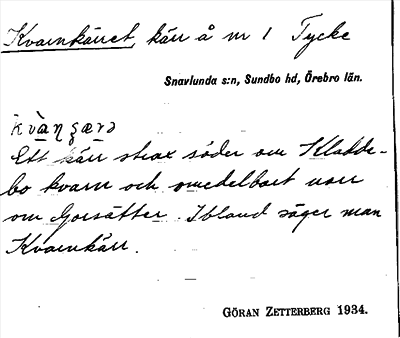 Kvarnkärret, kärr å nr 1 Tycke
Snavlunda s:n, Sundbo hd, Örebro län.
Ett kärr strax söder om Kladde-
bo kvarn och omedelbart norr
om Gorsätter. Ibland säger man
Kvarnkärr.
GÖRAN ZETTERBERG 1934.